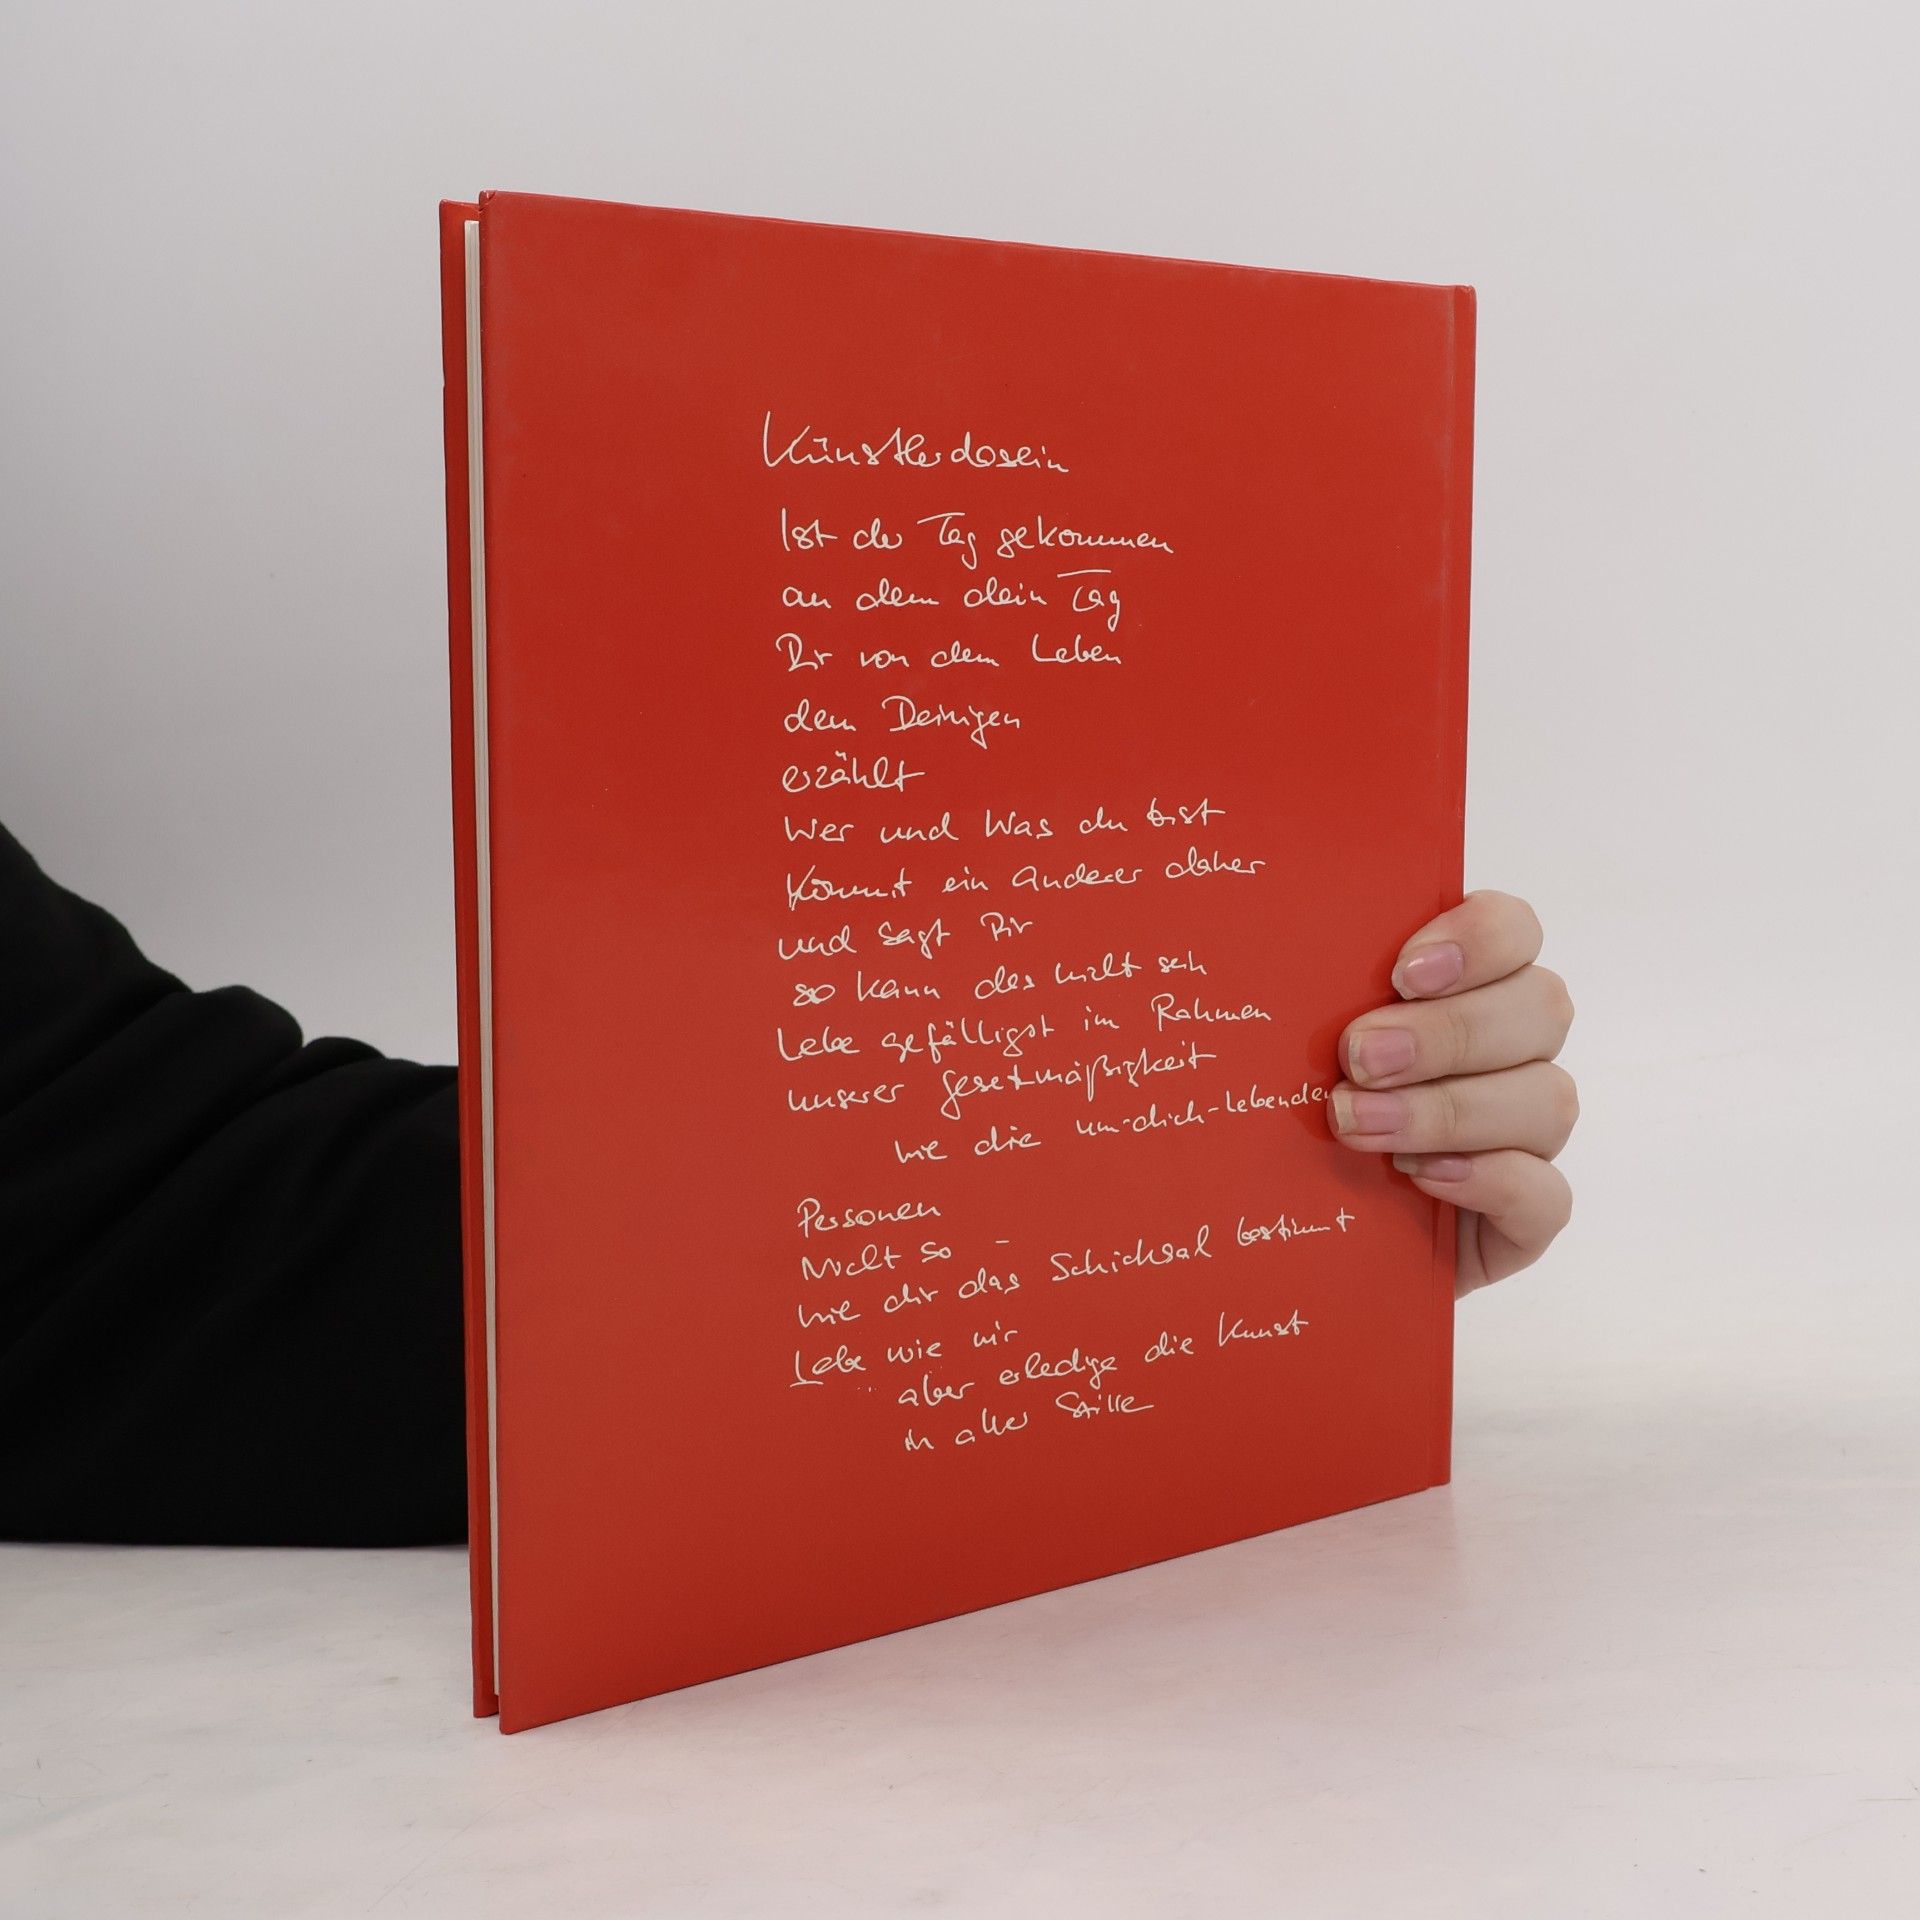 Künstlerdasein
Ist der Tag gekommen
an dem dein Tag
Dir von dem Leben
dem Deinigen
erzählt
Wer und Was du bist
Kommt ein Anderer daher
und sagt Dir
so kann das nicht sein
Lebe gefälligst im Rahmen
unserer Gesetzmäßigkeit
wie die um-dich-Lebenden
Personen
Nicht so –
wie dir das Schicksal bestimmt
Lebe wie wir
aber erledige die Kunst
in aller Stille